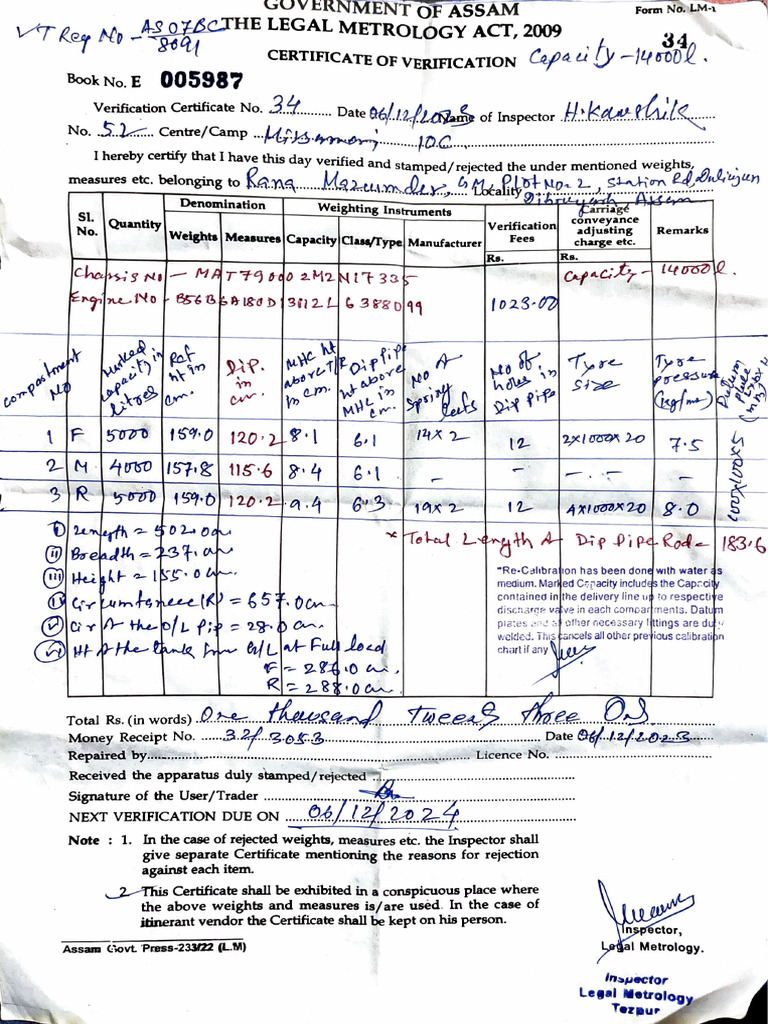 GOVERNMENT OF ASSAM
Form No. LM-1
VT Reg No - AS07BC/8091
THE LEGAL METROLOGY ACT, 2009
34
CERTIFICATE OF VERIFICATION
Capacity - 14000 l.
Book No. E 005987
Verification Certificate No. 34 Date 06/12/2023 Name of Inspector H. Kaushik
No. 52 Centre/Camp Missamari IOC
I hereby certify that I have this day verified and stamped/rejected the under mentioned weights,
measures etc. belonging to Rana Mazumder, GM, Plot No-2, Station Rd, Duliajan
Locality Dibrugarh, Assam
Sl. No. Quantity Denomination Weights Measures Weighting Instruments Capacity Class/Type Manufacturer Verification Fees Rs. Carriage conveyance adjusting charge etc. Rs. Remarks
Chassis No - MAT790002M2N17335 Capacity - 14000 l.
Engine No - B56B6A180D13112L63880499 1023.00
Compartment No Marked capacity in litres Ref ht in cm. Dip. in cm. MHC ht above T/R in cm. Dip pipe ht above MHC in cm. No of Spring leafs No of holes in Dip pipe Tyre size Tyre pressure (kg/
1 F 5000 159.0 120.2 8.1 6.1 14x2 12 2x1000x20 7.5
2 M 4000 157.8 115.6 8.4 6.1 - - - . - -
3 R 5000 159.0 120.2 9.4 6.3 19x2 12 4x1000x20 8.0
Datum plate
100x100x5
i) Length = 502.0 cm
* Total Length of Dip Pipe Rod = 183.6
ii) Breadth = 237. cm
iii) Height = 155.0 cm.
iv) Circumference (R) = 657.0 cm.
v) Cir of the O/L Pip = 28.0 cm.
vi) Ht of the tank from G/L at Full load
F = 286.0 cm.
R = 288.0 cm
"Re-Calibration has been done with water as
medium. Marked Capacity includes the Capacity
contained in the delivery line up to respective
discharge valve in each compartments. Datum
plates and all other necessary fittings are duly
welded. This cancels all other previous calibration
chart if any
Total Rs. (in words) One thousand Tweenty three Only
Money Receipt No. 32/3053 Date 06/12/2023
Repaired by Licence No.
Received the apparatus duly stamped/rejected
Signature of the User/Trader
NEXT VERIFICATION DUE ON 06/12/2024
Note : 1. In the case of rejected weights, measures etc. the Inspector shall
give separate Certificate mentioning the reasons for rejection
against each item.
2. This Certificate shall be exhibited in a conspicuous place where
the above weights and measures is/are used. In the case of
itinerant vendor the Certificate shall be kept on his person.
Inspector,
Legal Metrology.
Assam Govt. Press-233/22 (L.M)
Inspector
Legal Metrology
Tezpur